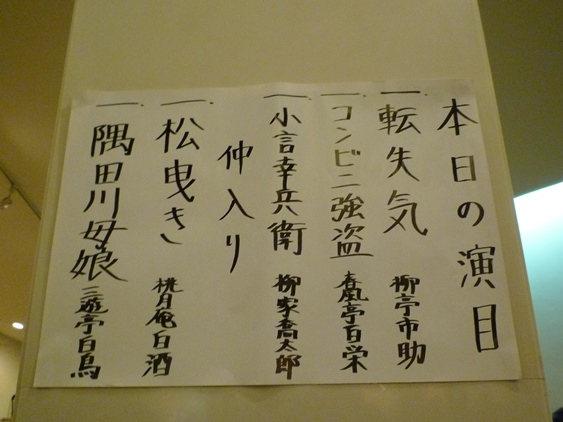 本日の演目
一.転失気 柳亭市助
一.コンビニ強盗 春風亭百栄
一.小言幸兵衛 柳家喬太郎
仲入り
一.松曳き 桃月庵白酒
一.隅田川母娘 三遊亭白鳥